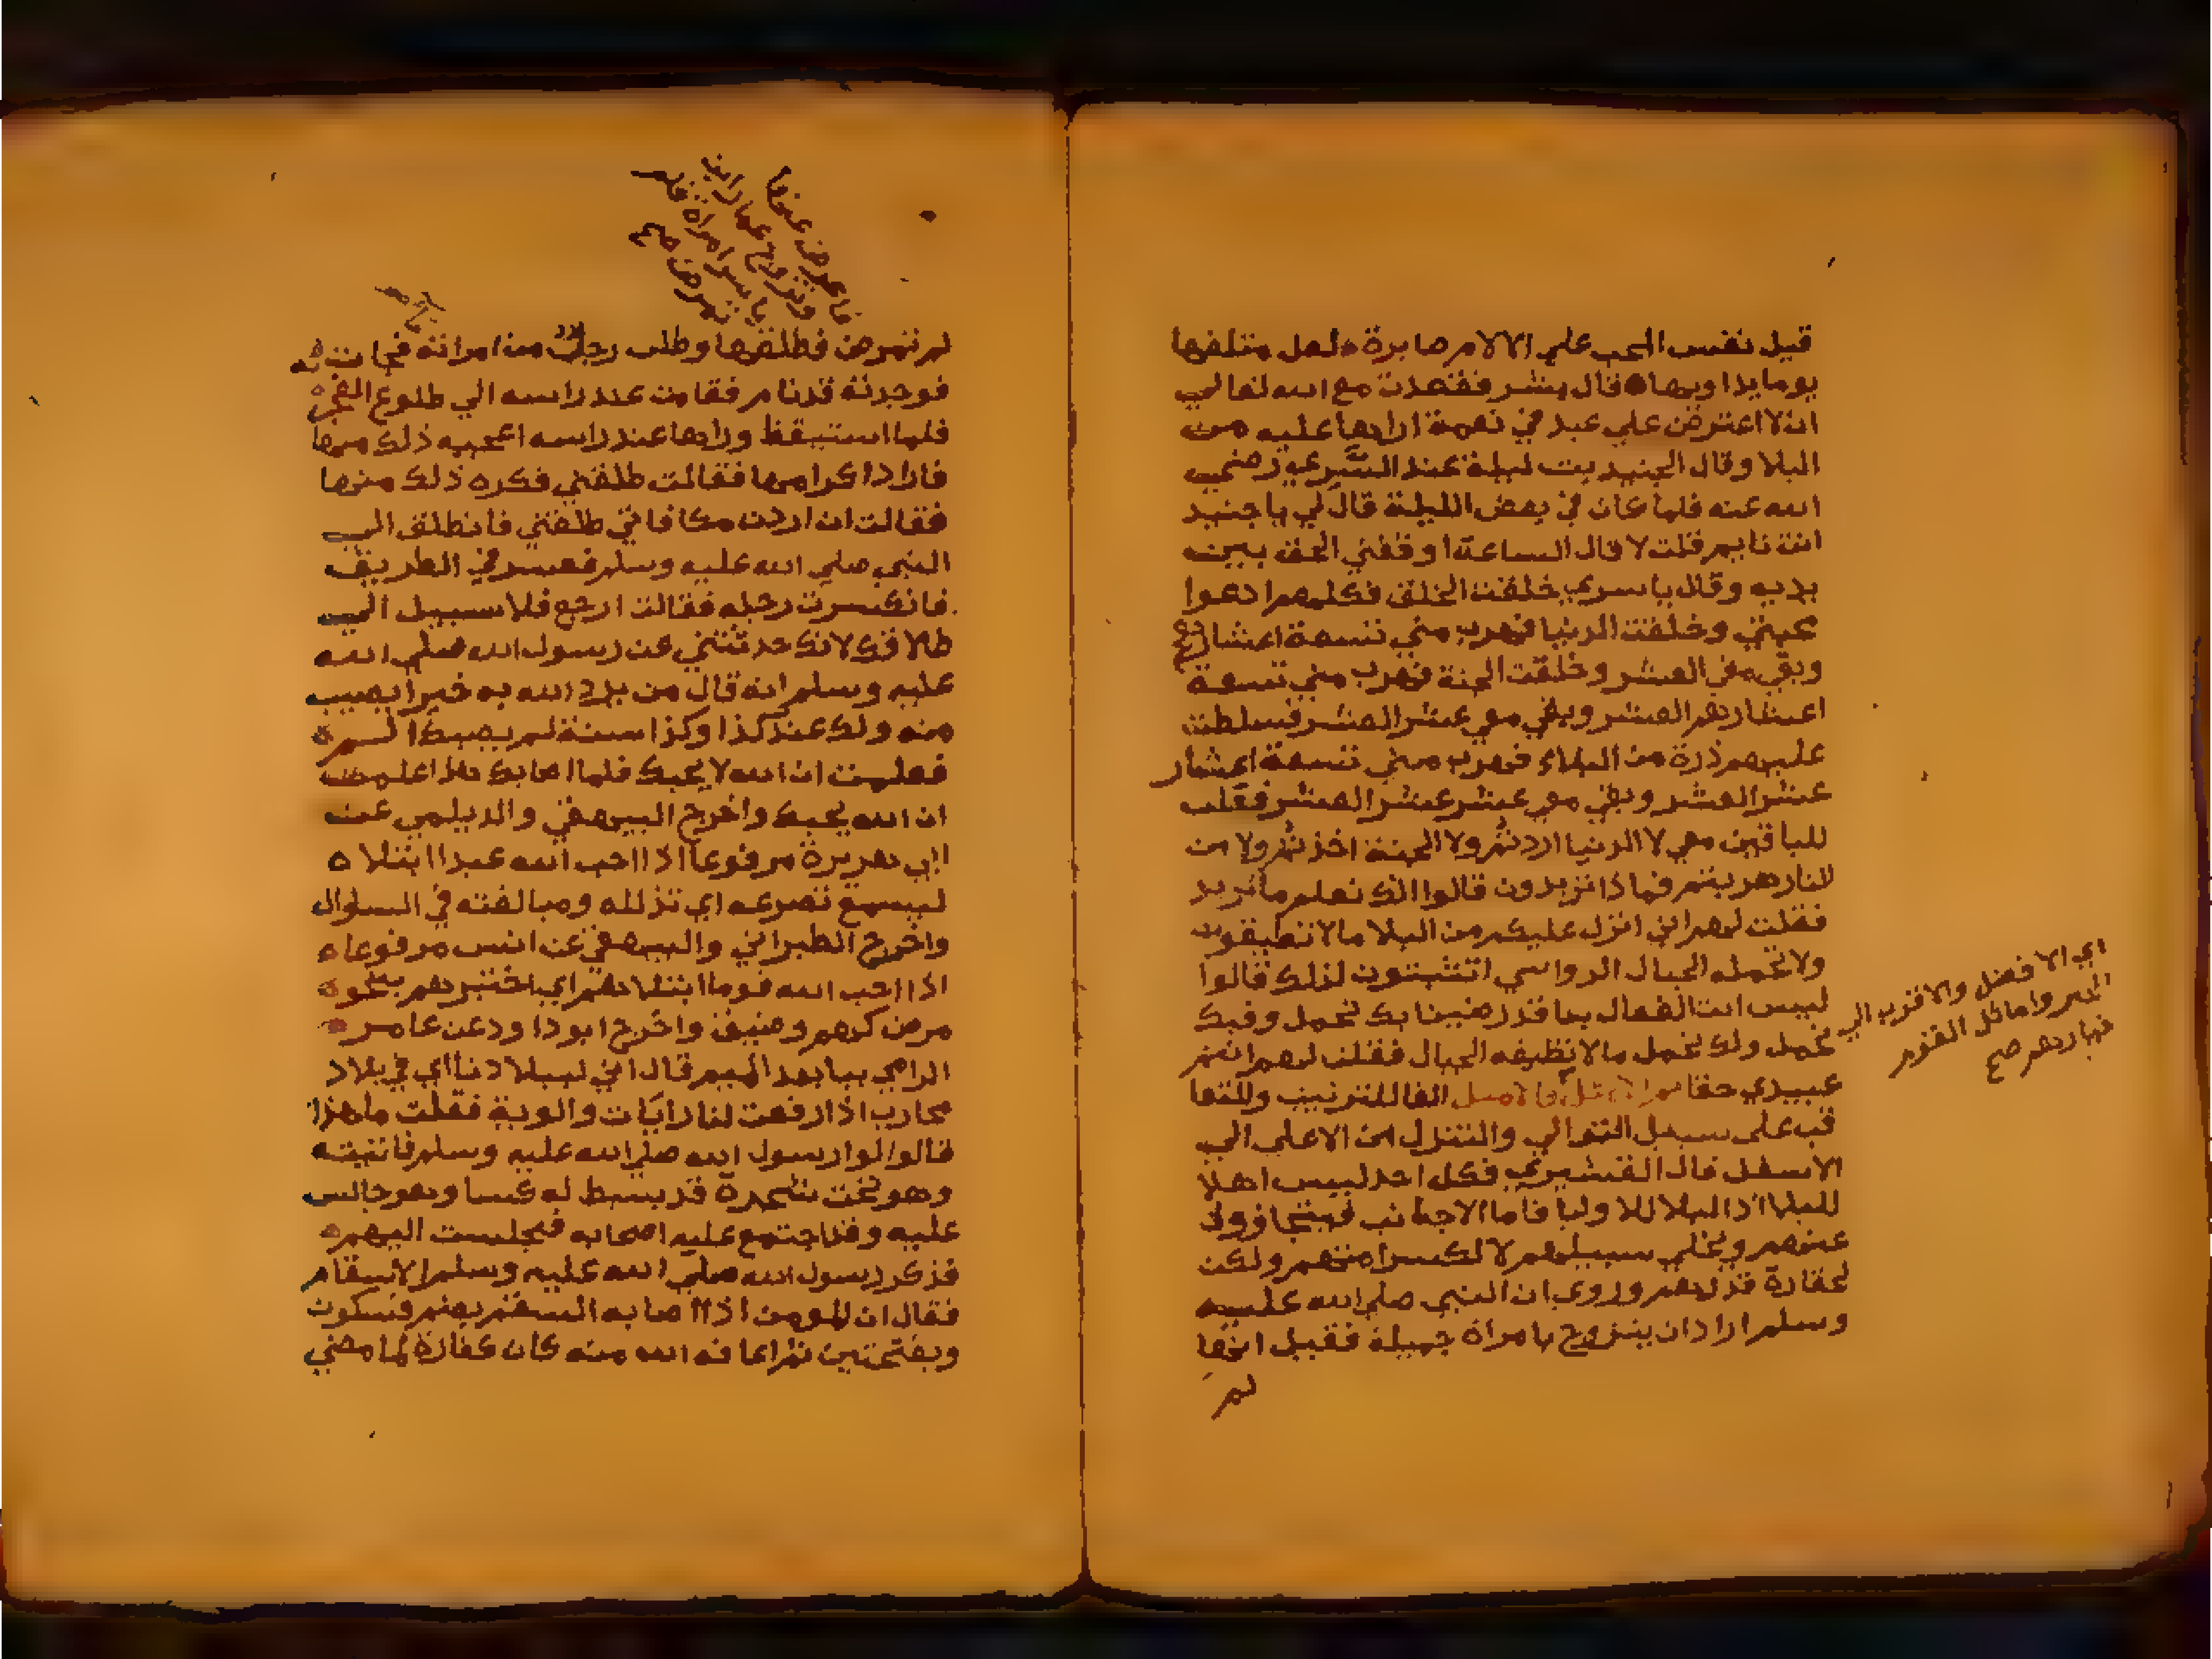 قيل نفس المحب علي الالام صابرة لعل متلفها
يوما يداويها قال بشر فقعدت مع الله تعالي
ان لا اعترض علي عبد في نعمة اراها عليه من
البلا وقال الجنيد بت ليلة عند السري رضي
الله عنه فلما كان في بعض الليلة قال لي يا جنيد
انت نايم قلت لا قال الساعة اوقفني الحق بين
يديه وقال يا سري خلقت الخلق فكلهم ادعوا
محبتي وخلقت الدنيا فهرب مني تسعة اعشارهم
وبقي معي العشر وخلقت الجنة فهرب مني تسعة
اعشارهم العشر وبقي معي عشر العشر فسلطت
عليهم ذرة من البلاء فهرب مني تسعة اعشار
عشر العشر وبقي معي عشر عشر العشر فقلت
للباقين معي لا الدنيا اردتم ولا الجنة اخذتم ولا من
النار هربتم فماذا تريدون قالوا انك تعلم ما نريد
فقلت لهم اني انزل عليكم من البلا ما لا تطيقون
ولا تحمله الجبال الرواسي اتثبتون لذلك قالوا
ليس انت الفعال بنا قد رضينا بك نحمل وفيك
نحمل ولك نحمل ما لا تطيقه الجبال فقلت لهم انتم
عبيدي حقا ثم الامثل فالامثل الفا للترتيب والتعا
قب علي سبيل التوالي والتنزل من الاعلي الي
الاسفل قال القشيري فكل احد ليس اهلا
للبلا اذ البلا للاوليا فاما الاجانب فيتجاوز
عنهم ويخلي سبيلهم لا لكسرا منهم ولكن
لحقارة قدرهم وروي ان النبي صلي الله عليه
وسلم اراد ان يتزوج بامراة جميلة فقيل انها
لم
اي الافضل والاقرب الي
الخير واماثل القوم
خيارهم صح
لم تمرض فطلقها وطلب رجل من امراته فجات به
فوجدته قد نام فقامت عند راسه الي طلوع الفجر
فلما استيقظ وراها عند راسه اعجبه ذلك منها
فاراد اكرامها فقالت طلقني فكره ذلك منها
فقالت ان اردت مكافاتي طلقني فانطلق الي
النبي صلي الله عليه وسلم فعسر في الطريق
فانكسرت رجله فقالت ارجع فلا سبيل الي
طلاقك لانك حدثتني عن رسول الله صلي الله
عليه وسلم انه قال من يرد الله به خيرا يصب
منه ولك عندي كذا وكذا سنة لم يصبك الم
فعلمت ان الله لا يحبك فلما اصابك هذا علمت
ان الله يحبك واخرج البيهقي والديلمي عن
ابي هريرة مرفوعا اذا احب الله عبدا ابتلاه
ليسمع تضرعه اي تذلله ومبالغته في السوال
واخرج الطبراني والبيهقي عن انس مرفوعا
اذا احب الله قوما ابتلاهم اي اختبرهم بنحو
مرض كهم وضيق واخرج ابو داود عن عامر
الرامي بيا بعد الميم قال اني لببلادنا اي في بلاد
محارب اذ ارفعت لنا رايات والوية فقلت ما هذا
قالوا لوا رسول الله صلي الله عليه وسلم فاتيته
وهو تحت شجرة قد بسط له كسا وهو جالس
عليه وقد اجتمع عليه اصحابه فجلست اليهم
فذكر رسول الله صلي الله عليه وسلم الاسقام
فقال ان المومن اذا اصابه السقم بضم فسكون
وبفتحتين ثم اعافه الله منه كان كفارة لما مضي